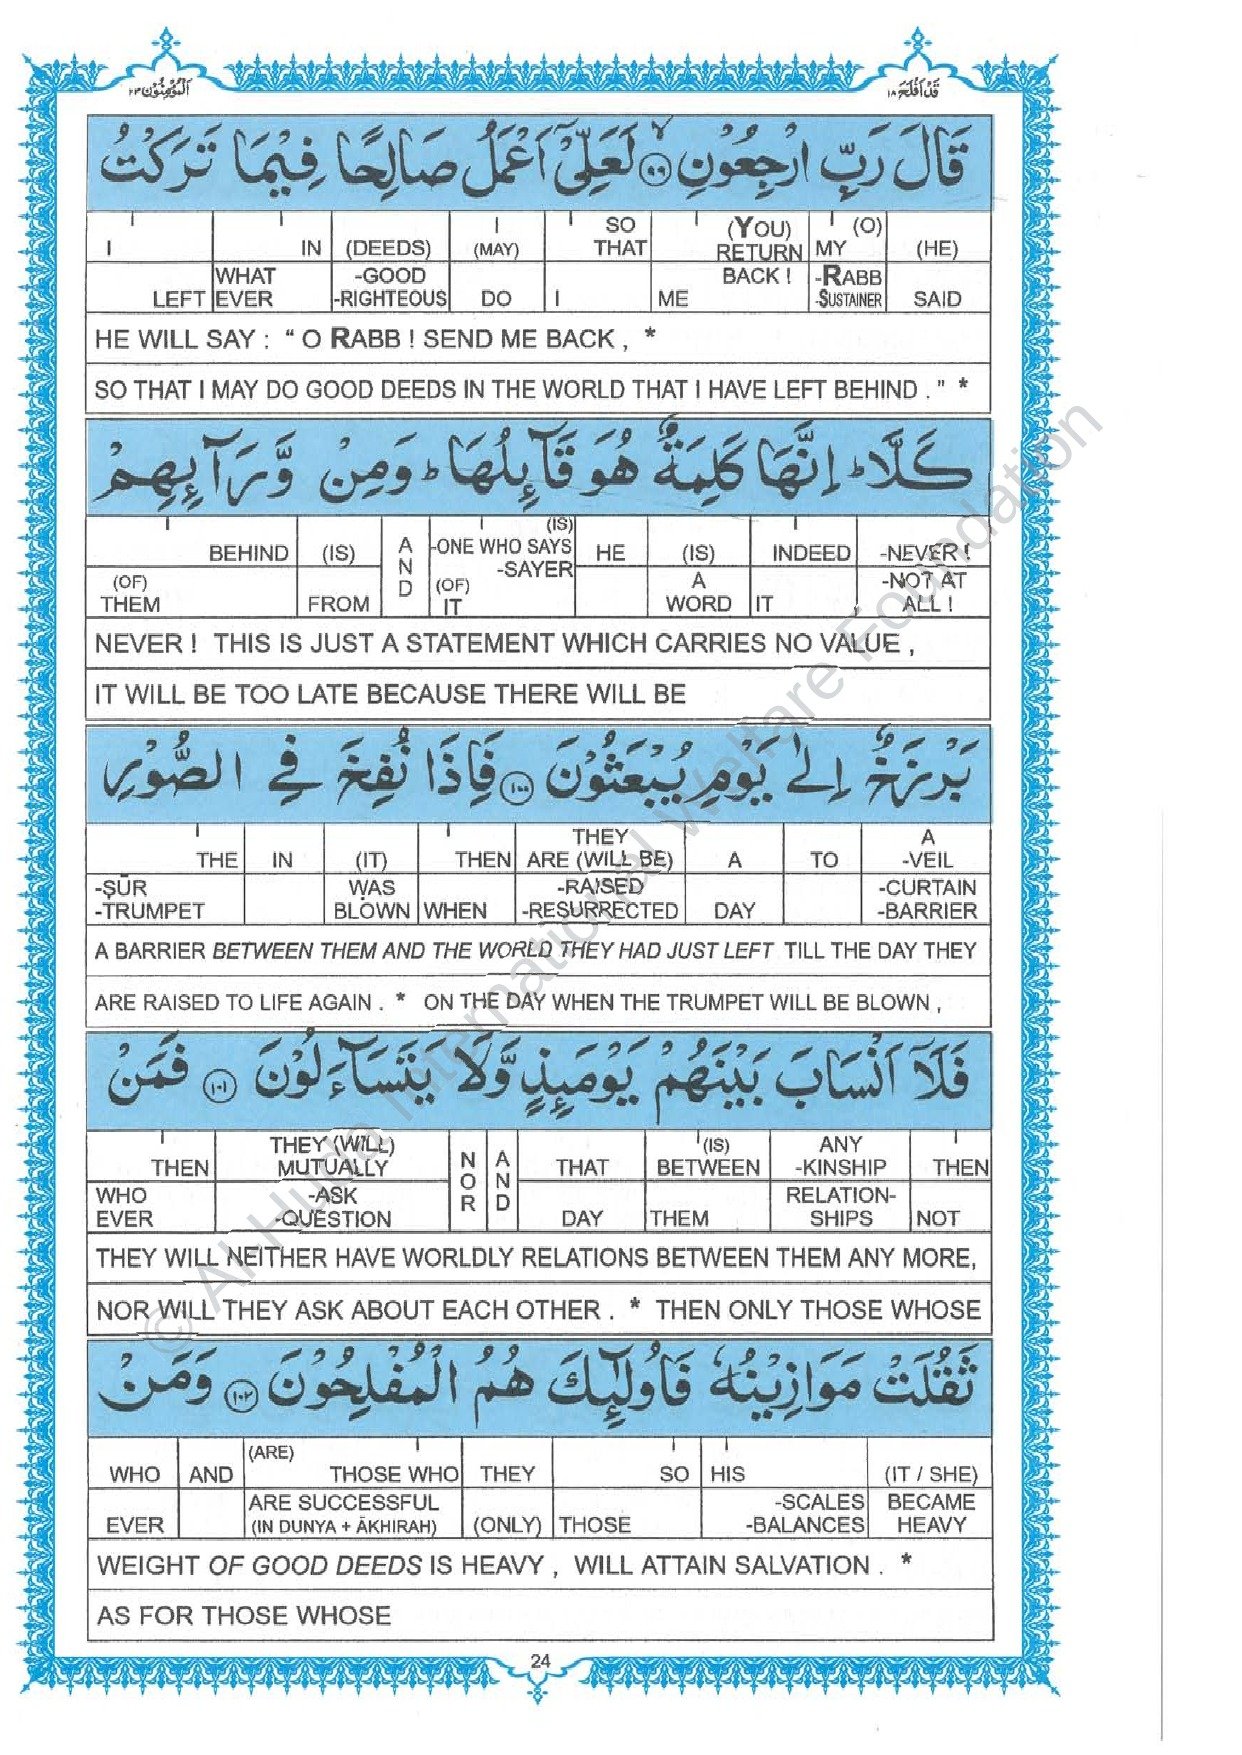 المؤمنون ٢٣
قد افلح ١٨
قَالَ رَبِّ ارْجِعُوْنِ ۙ ٩٩ لَعَلِّىْٓ اَعْمَلُ صَالِحًا فِيْمَا تَرَكْتُ
I IN (DEEDS) I (MAY) SO THAT (YOU) RETURN MY (O) (HE)
LEFT WHAT EVER -GOOD -RIGHTEOUS DO I ME BACK ! -RABB -SUSTAINER SAID
HE WILL SAY : “ O RABB ! SEND ME BACK , *
SO THAT I MAY DO GOOD DEEDS IN THE WORLD THAT I HAVE LEFT BEHIND . " *
كَلَّا ؕ اِنَّهَا كَلِمَةٌ هُوَ قَآئِلُهَا ؕ وَمِنْ وَّرَآئِهِمْ
BEHIND (IS) AND (IS) -ONE WHO SAYS -SAYER HE (IS) INDEED -NEVER !
(OF) THEM FROM (OF) IT A WORD IT -NOT AT ALL !
NEVER ! THIS IS JUST A STATEMENT WHICH CARRIES NO VALUE ,
IT WILL BE TOO LATE BECAUSE THERE WILL BE
بَرْزَخٌ اِلٰى يَوْمِ يُبْعَثُوْنَ ١٠٠ فَاِذَا نُفِخَ فِى الصُّوْرِ
THE IN (IT) THEN THEY ARE (WILL BE) A TO A -VEIL
-ṢŪR -TRUMPET WAS BLOWN WHEN -RAISED -RESURRECTED DAY -CURTAIN -BARRIER
A BARRIER BETWEEN THEM AND THE WORLD THEY HAD JUST LEFT TILL THE DAY THEY
ARE RAISED TO LIFE AGAIN . * ON THE DAY WHEN THE TRUMPET WILL BE BLOWN ,
فَلَآ اَنْسَابَ بَيْنَهُمْ يَوْمَئِذٍ وَّلَا يَتَسَآءَلُوْنَ ١٠١ فَمَنْ
THEN THEY (WILL) MUTUALLY NOR AND THAT (IS) BETWEEN ANY -KINSHIP THEN
WHO EVER -ASK -QUESTION DAY THEM RELATION- SHIPS NOT
THEY WILL NEITHER HAVE WORLDLY RELATIONS BETWEEN THEM ANY MORE,
NOR WILL THEY ASK ABOUT EACH OTHER . * THEN ONLY THOSE WHOSE
ثَقُلَتْ مَوَازِيْنُهٗ فَاُولٰٓئِكَ هُمُ الْمُفْلِحُوْنَ ١٠٢ وَمَنْ
WHO AND (ARE) THOSE WHO THEY SO HIS (IT / SHE)
EVER ARE SUCCESSFUL (IN DUNYA + ĀKHIRAH) (ONLY) THOSE -SCALES -BALANCES BECAME HEAVY
WEIGHT OF GOOD DEEDS IS HEAVY , WILL ATTAIN SALVATION . *
AS FOR THOSE WHOSE
24
© Al-Huda International Welfare Foundation